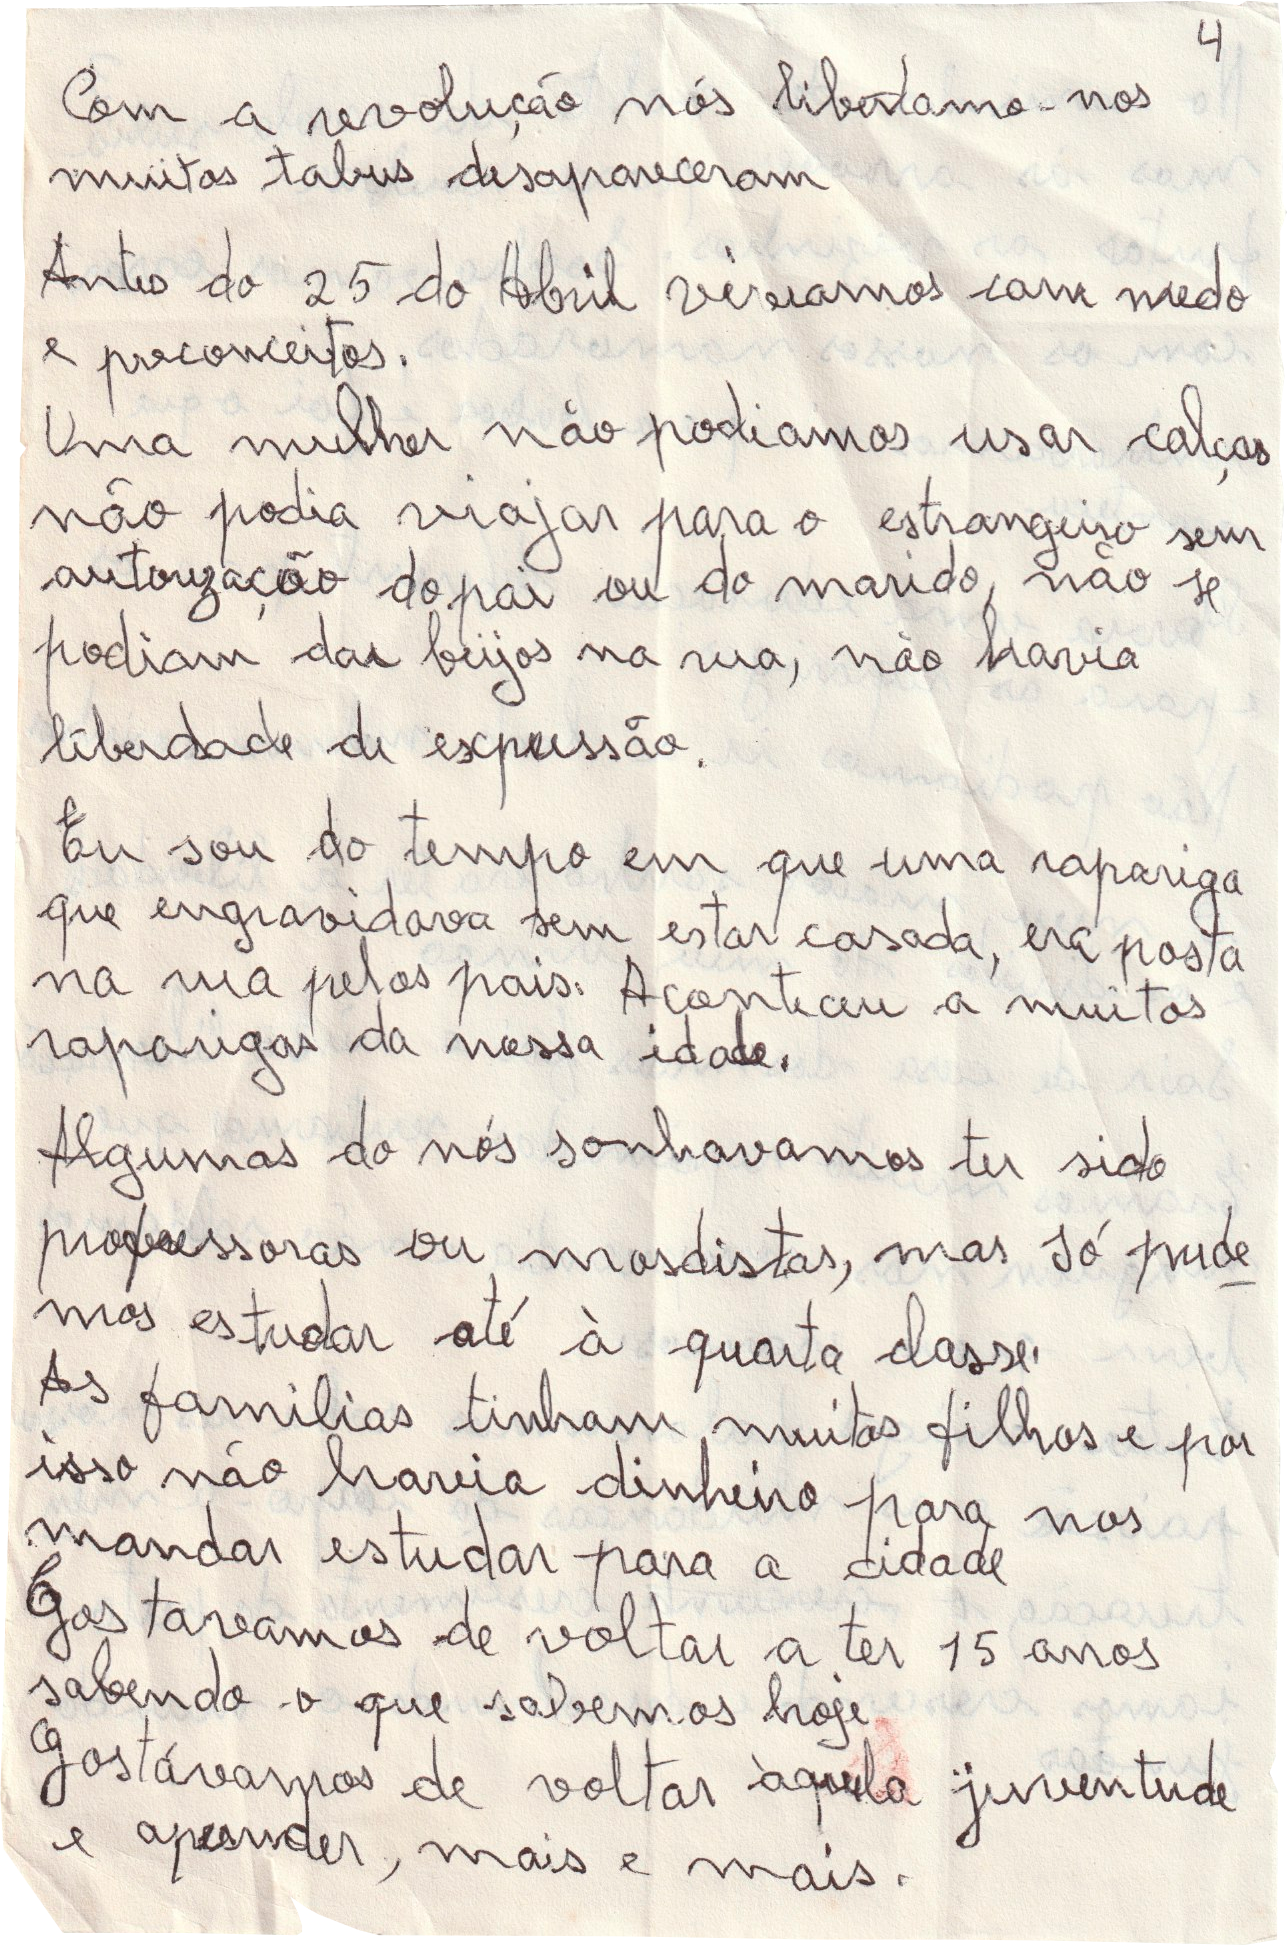 4
Com a revolução nós libertamo-nos
muitos tabus desapareceram
Antes do 25 do Abril viviamos com medo
e preconceitos.
Uma mulher não podiamos usar calças
não podia viajar para o estrangeiro sem
autorização do pai ou do marido, não se
podiam dar beijos na rua, não havia
liberdade de expressão.
Eu sou do tempo em que uma rapariga
que engravidava sem estar casada, era posta
na rua pelos pais. Aconteceu a muitas
raparigas da nossa idade.
Algumas do nós sonhavamos ter sido
professoras ou mosdistas, mas só pude
mos estudar até à quarta classe.
As familias tinham muitos filhos e por
isso não havia dinheiro para nos
mandar estudar para a cidade
Gostavamos de voltar a ter 15 anos
sabendo o que sabemos hoje
Gostávamos de voltar àquela juventude
e aprender, mais e mais.